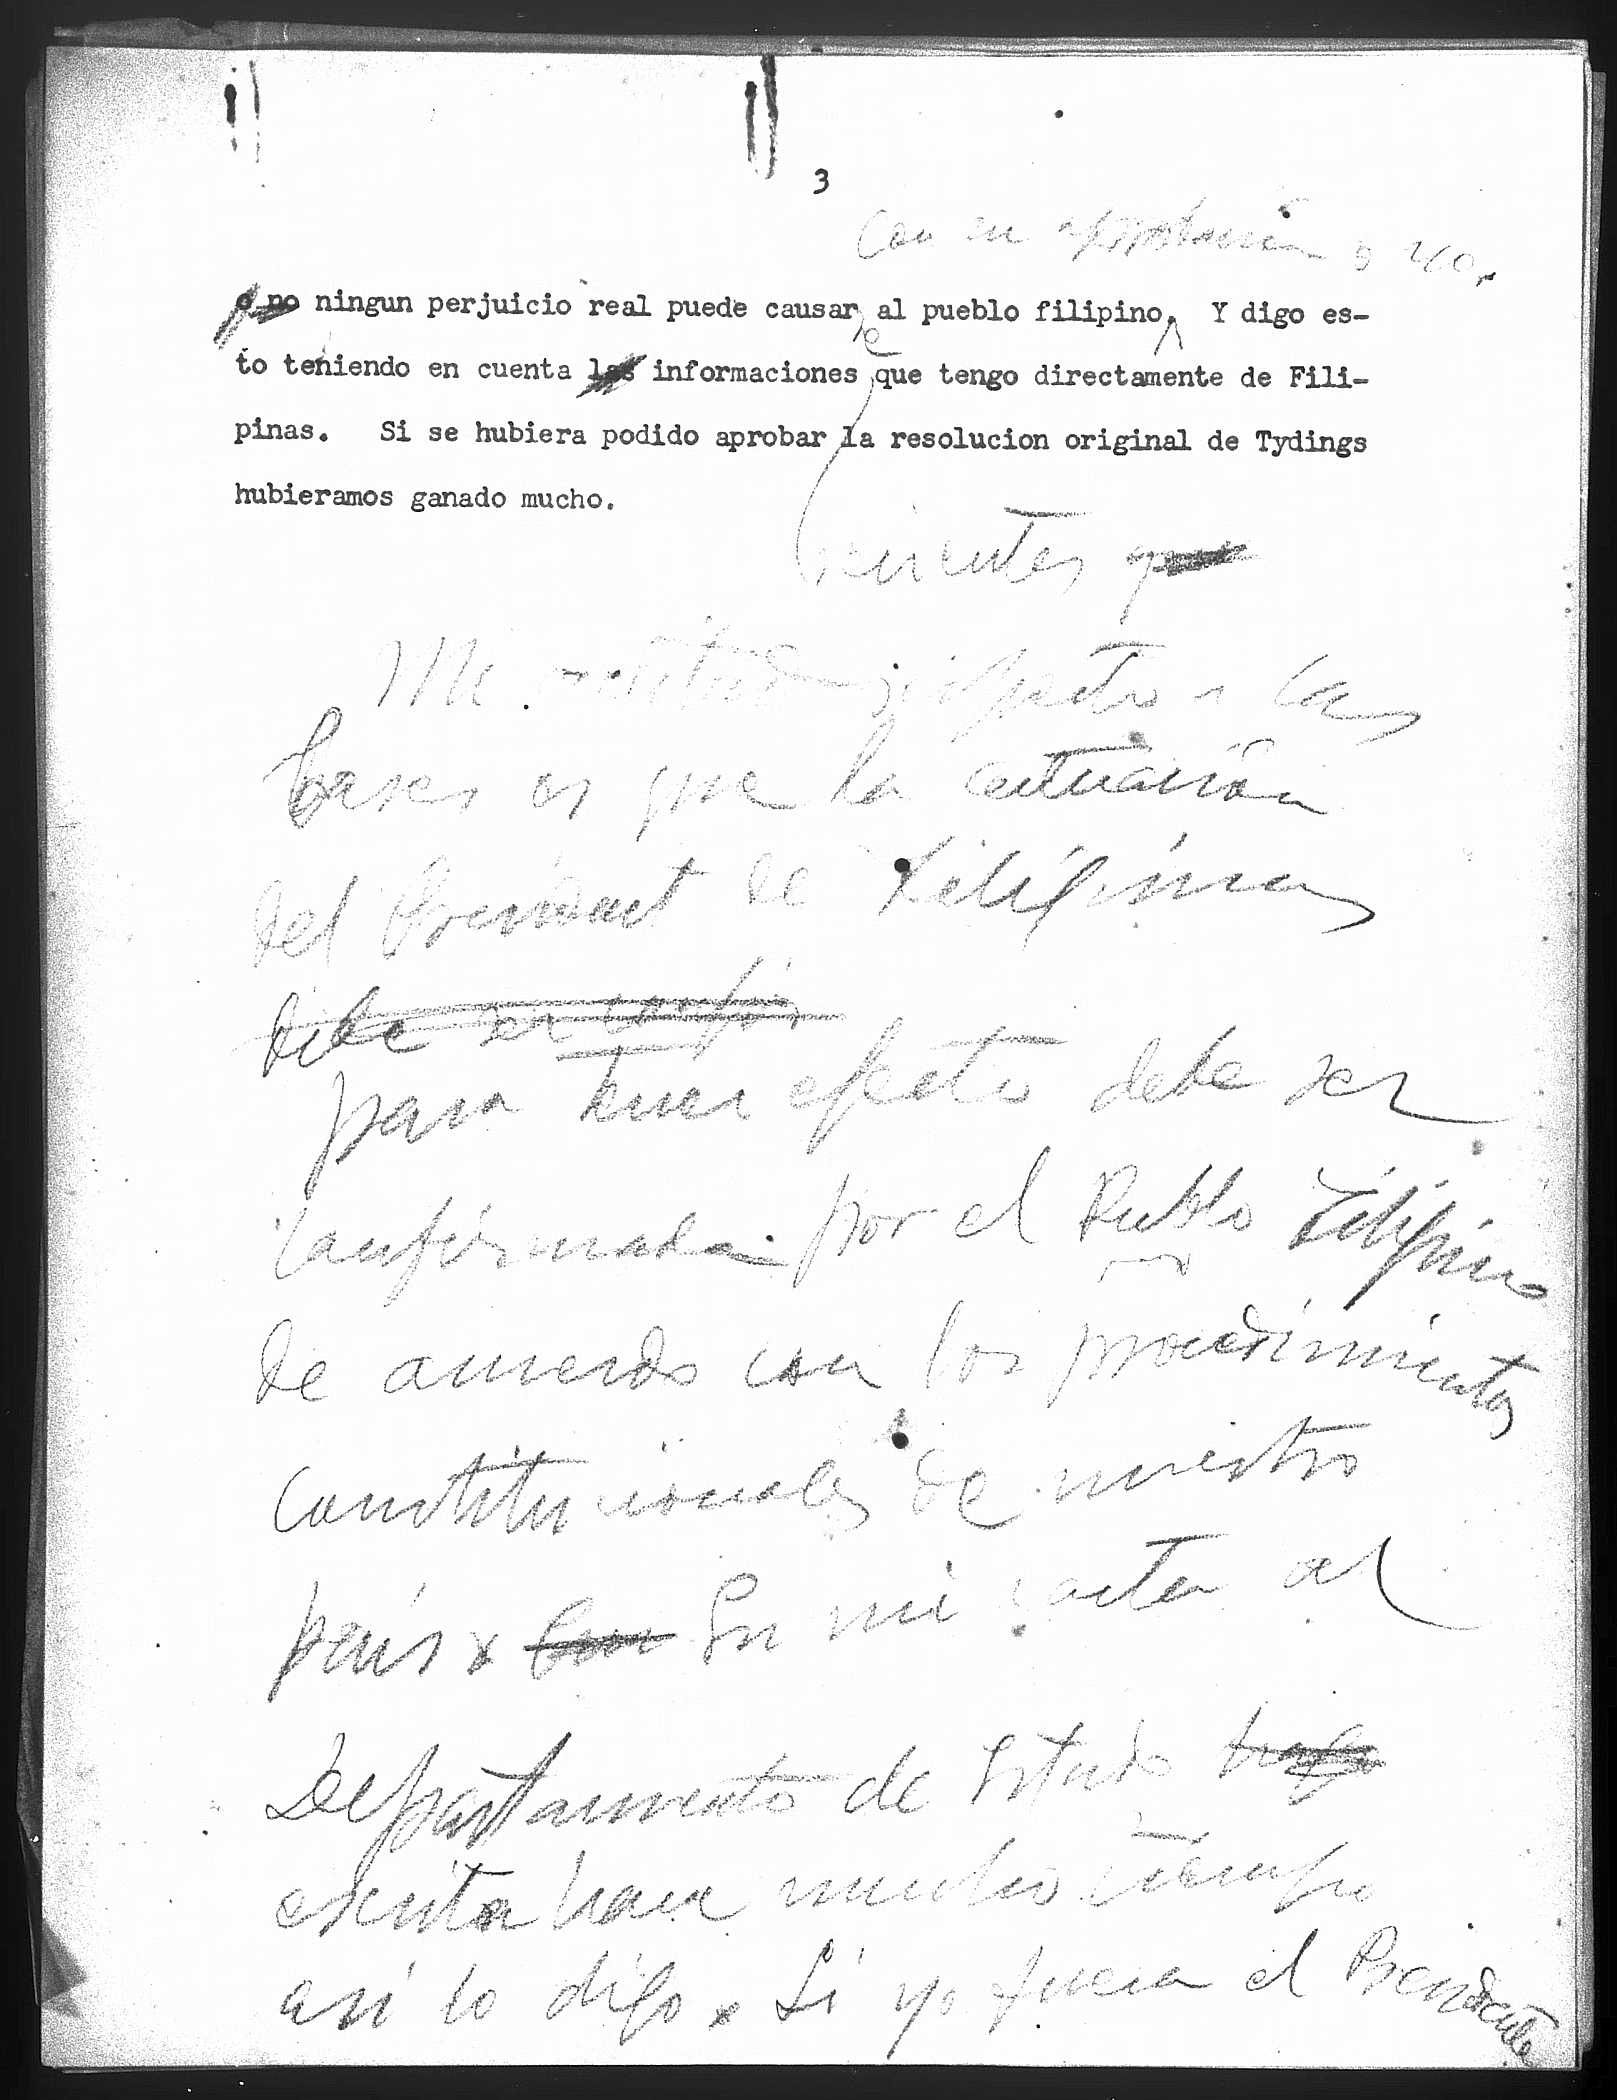 3
Con su aprobación o no.
o no ningun perjuicio real puede causar al pueblo filipino. Y digo es-
to teniendo en cuenta las informaciones que tengo directamente de Fili-
pinas. Si se hubiera podido aprobar la resolucion original de Tydings
hubieramos ganado mucho.
recientes que
Mi actitud respecto a las
bases es que la actuación
del President de Filipinas
debe ser
para tener efecto debe ser
confirmada por el Pueblo Filipino
de acuerdo con los procedimientos
constitucionales de nuestro
país x En mi carta al
Departamento de Estado
escrita hace mucho tiempo
asi lo digo x Si yo fuera el Presidente